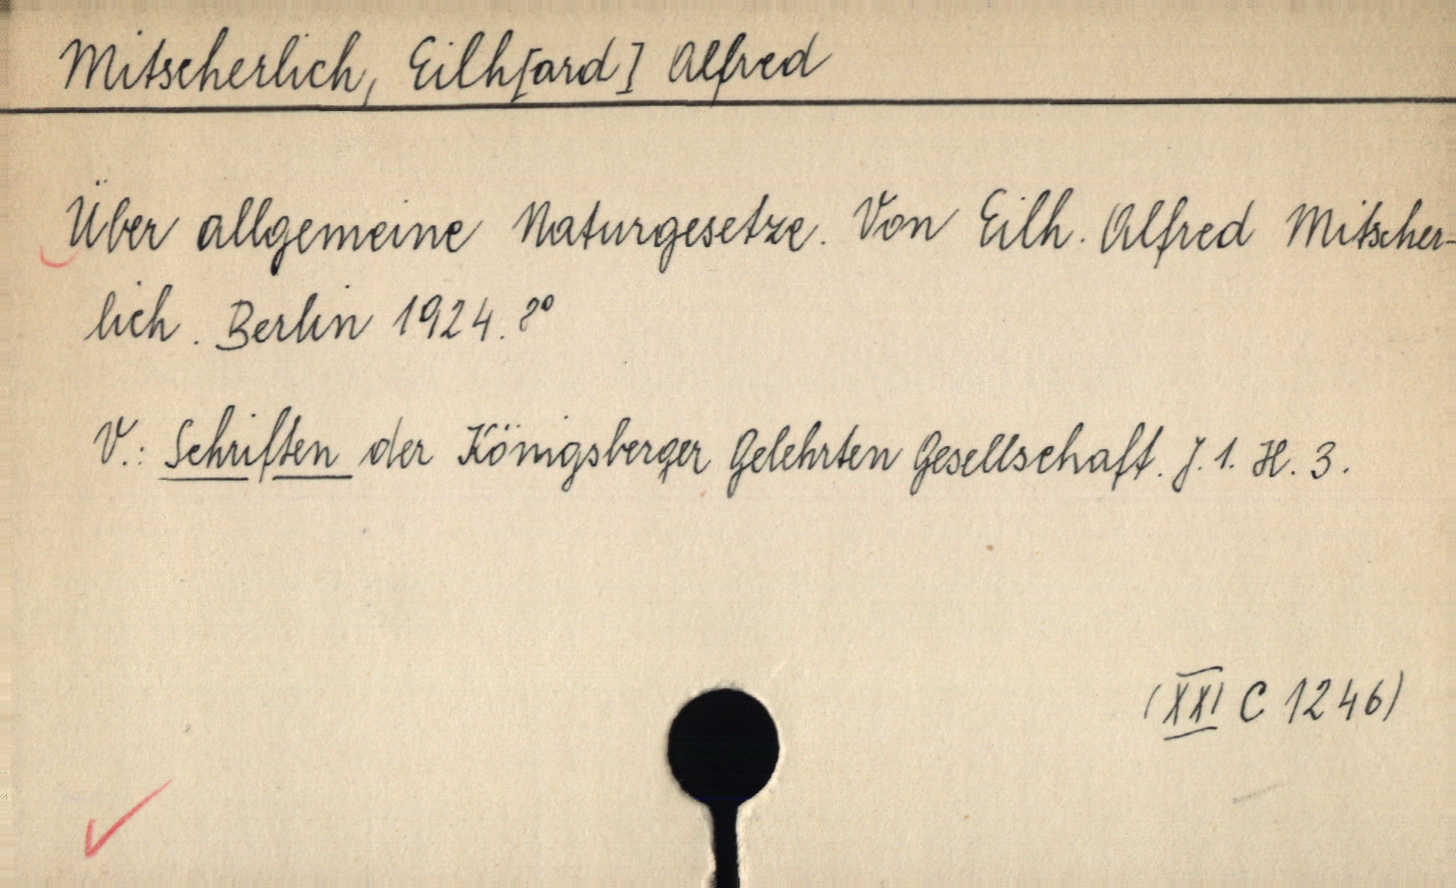 Mitscherlich, Eilh[ard] Alfred
Über allgemeine Naturgesetze. Von Eilh. Alfred Mitscher-
lich. Berlin 1924. 8°
V.: Schriften der Königsberger Gelehrten Gesellschaft. J. 1. H. 3.
(XXI C 1246)